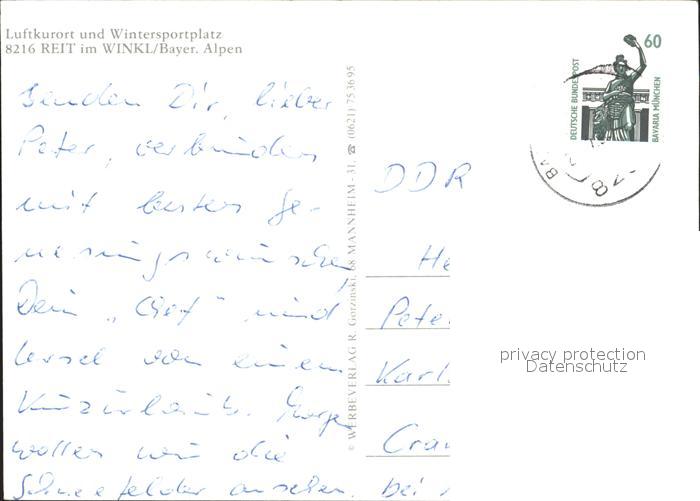 Luftkurort und Wintersportplatz
8216 REIT im WINKL/Bayer. Alpen
senden Dir, lieber
Peter, verbunden
mit besten Ge-
nesungswünschen
Dein "Chef" und
von einem
Kurzurlaub. Morgen
wollen wir die
Schneefelder ansehen.
© WERBEVERLAG R. Gorzinski, 68 MANNHEIM-31, ☎ (0621) 75 36 95
60
DEUTSCHE BUNDESPOST
BAVARIA MÜNCHEN
DDR
He
Pete
Karl
Cra
bei
privacy protection
Datenschutz